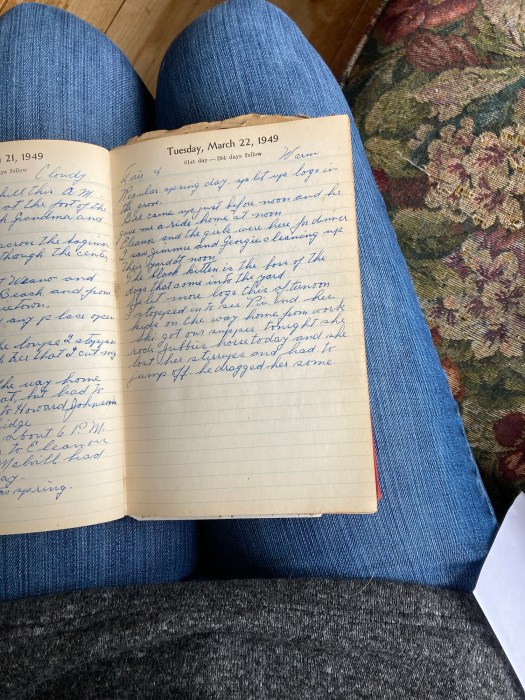 21, 1949
follow
Cloudy
A.M.
at the foot of the
Grandma and
across the
though the center
Weano and
Beach and from
any place open
the longes 2
that I cut my
the way home
but had to
to Howard Johnson
about 6 P.M.
to Eleanor
Melvill had
spring.
Tuesday, March 22, 1949
81st day—284 days follow
Fair & Warm
Regular spring day, split up logs in
the grove.
came up just before noon and he
gave me a ride home at noon
Eleanor and the girls were here for dinner
I saw Jimmie and Georgie cleaning up
their yard at noon
The black kitten is the boss of the
dogs that come into the yard
Split more logs this afternoon
I stopped in to see and her
kids on the way home from work
She got our supper tonight she
rode horse today and she
lost her styrryps and had to
jump off. he dragged her some